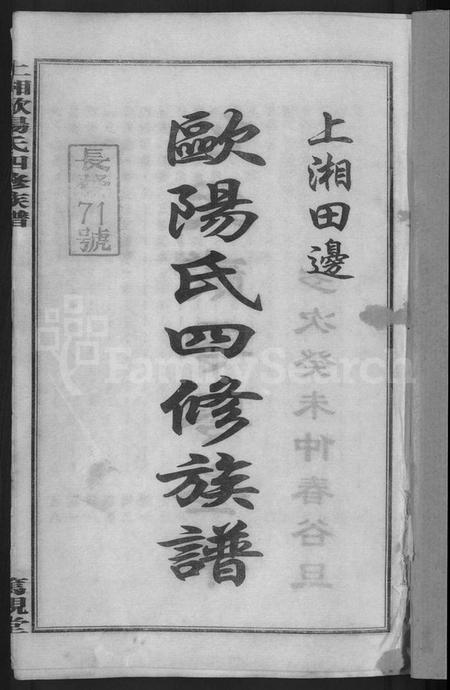 上湘田邊
歐陽氏四修族譜
長
71
號
上湘歐陽氏四修族譜
篤親堂
歲次癸未仲春谷旦
FamilySearch